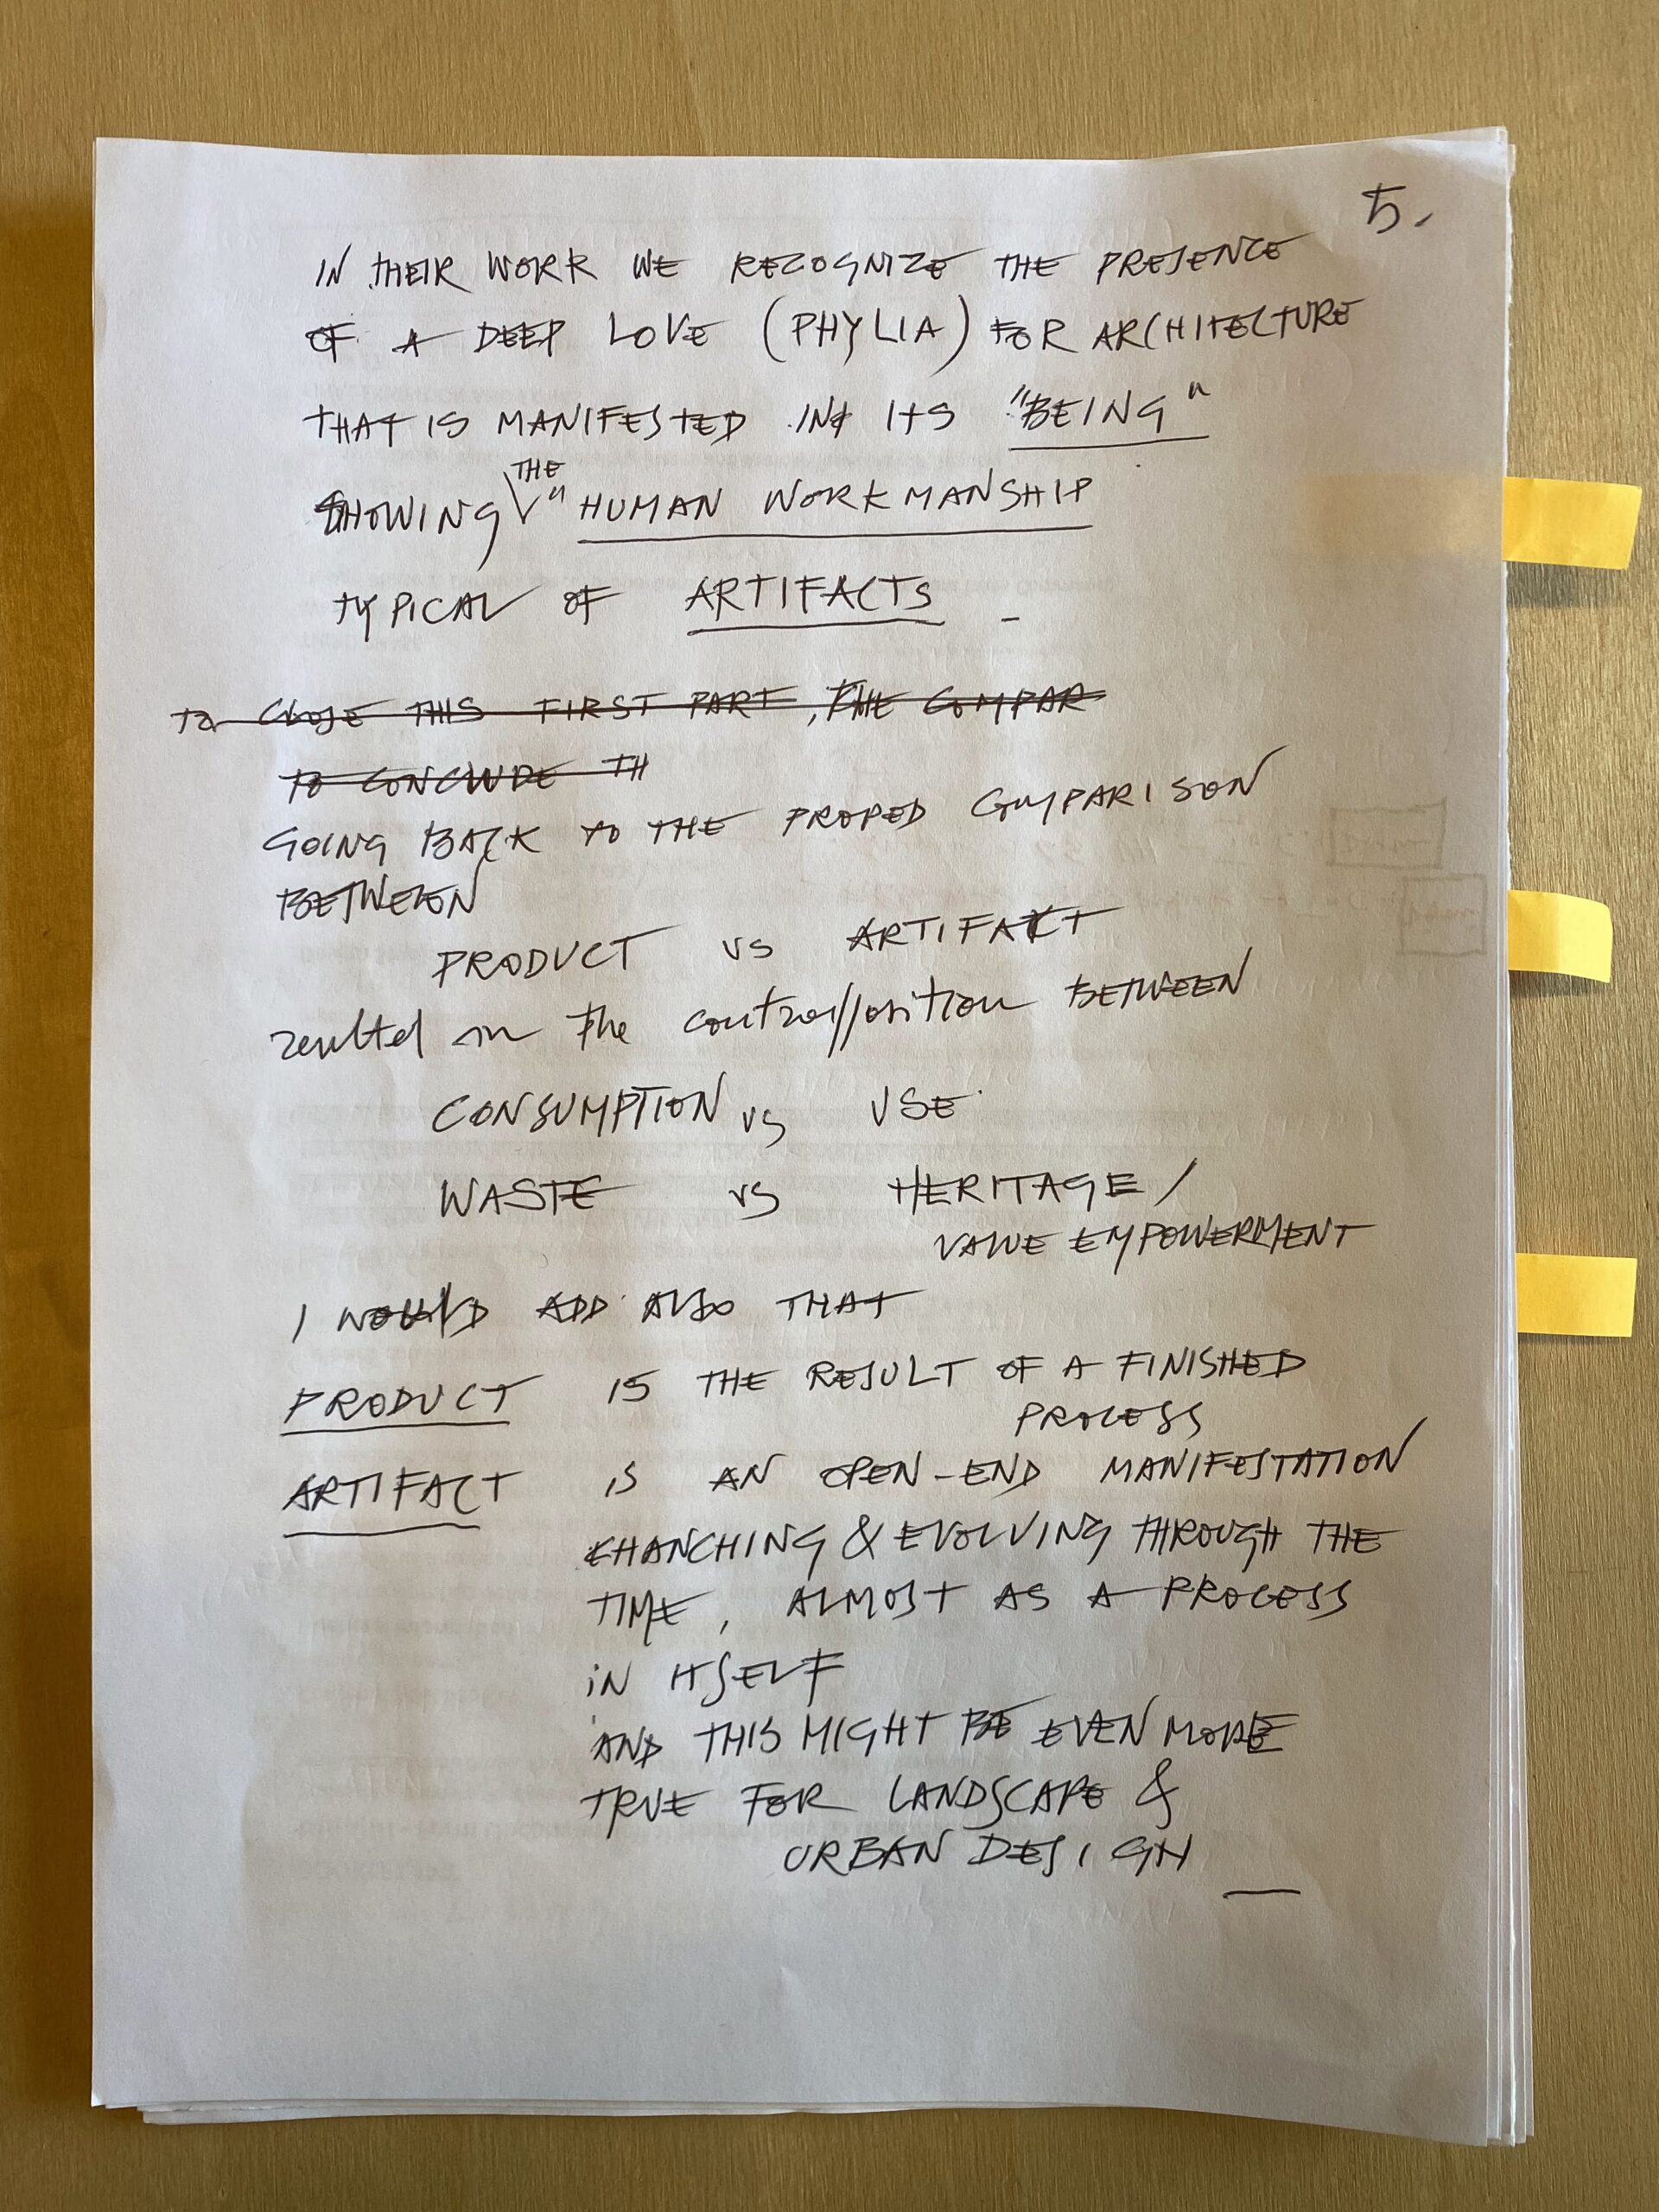 5.
IN THEIR WORK WE RECOGNIZE THE PRESENCE
OF A DEEP LOVE (PHYLIA) FOR ARCHITECTURE
THAT IS MANIFESTED IN ITS "BEING"
SHOWING THE "HUMAN WORKMANSHIP
TYPICAL OF ARTIFACTS
TO CLOSE THIS FIRST PART, THE COMPAR
TO CONCLUDE TH
GOING BACK TO THE PROPED COMPARISON
BETWEEN
PRODUCT VS ARTIFACT
resulted in the contrapposition BETWEEN
CONSUMPTION VS USE
WASTE VS HERITAGE /
VALUE EMPOWERMENT
I WOULD ADD ALSO THAT
PRODUCT IS THE RESULT OF A FINISHED
PROCESS
ARTIFACT IS AN OPEN-END MANIFESTATION
CHANCHING & EVOLVING THROUGH THE
TIME, ALMOST AS A PROCESS
IN ITSELF
AND THIS MIGHT BE EVEN MORE
TRUE FOR LANDSCAPE &
URBAN DESIGN